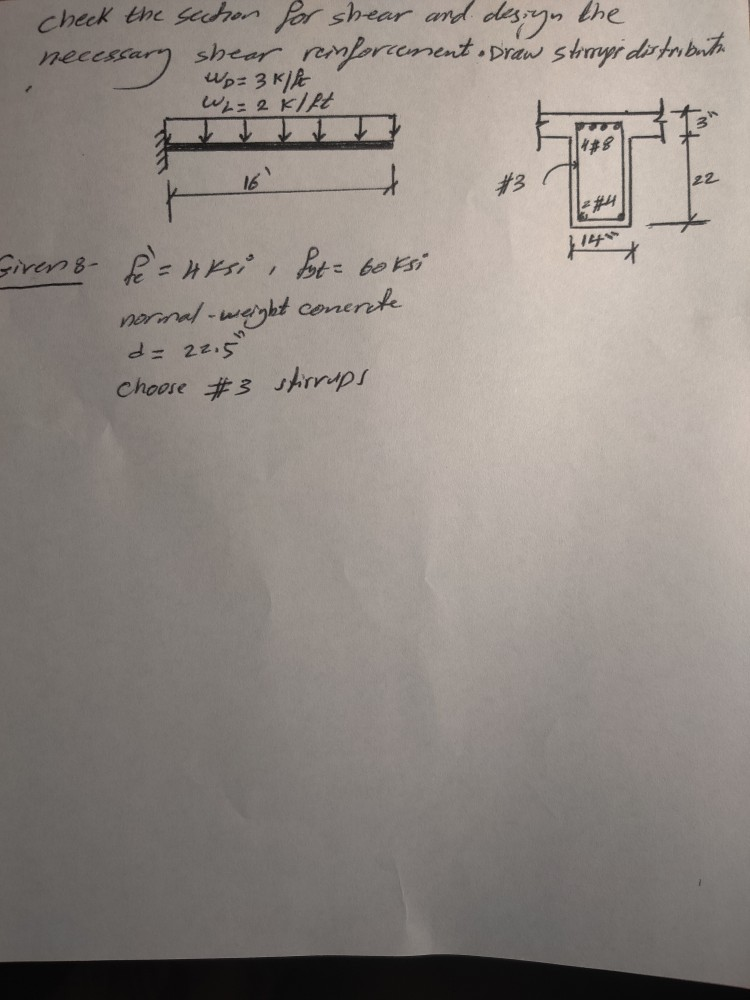 check the section for shear and design the
necessary shear reinforcement. Draw stirrups distributi
WD= 3 K/ft
WL= 2 K/ft
16'
3"
4#8
#3
22
2#4
14"
Given 8-
fc' = 4 Ksi, fyt = 60 Ksi
normal-weight concrete
d = 22.5"
choose #3 stirrups